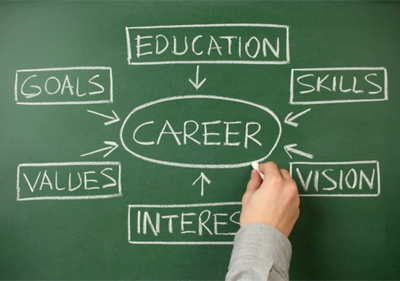 EDUCATION
GOALS
SKILLS
CAREER
VALUES
VISION
INTERES